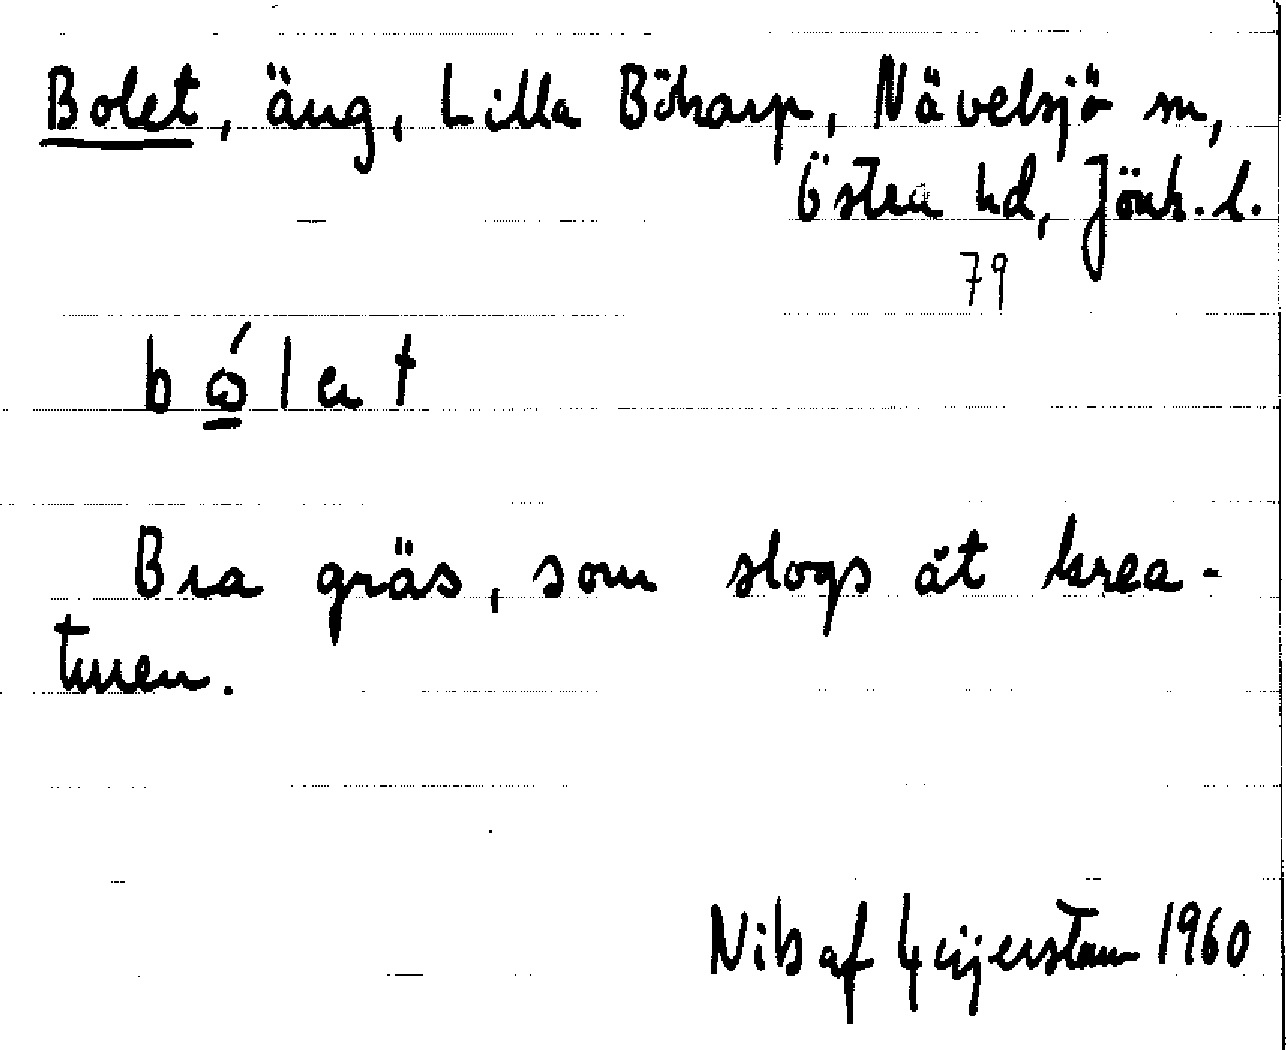 Bolet, äng, Lilla Böharp, Nävelsjö sn,
Östra hd, Jönk. l.
79
Bra gräs, som slogs åt krea-
turen.
Nils af Geijerstam 1960